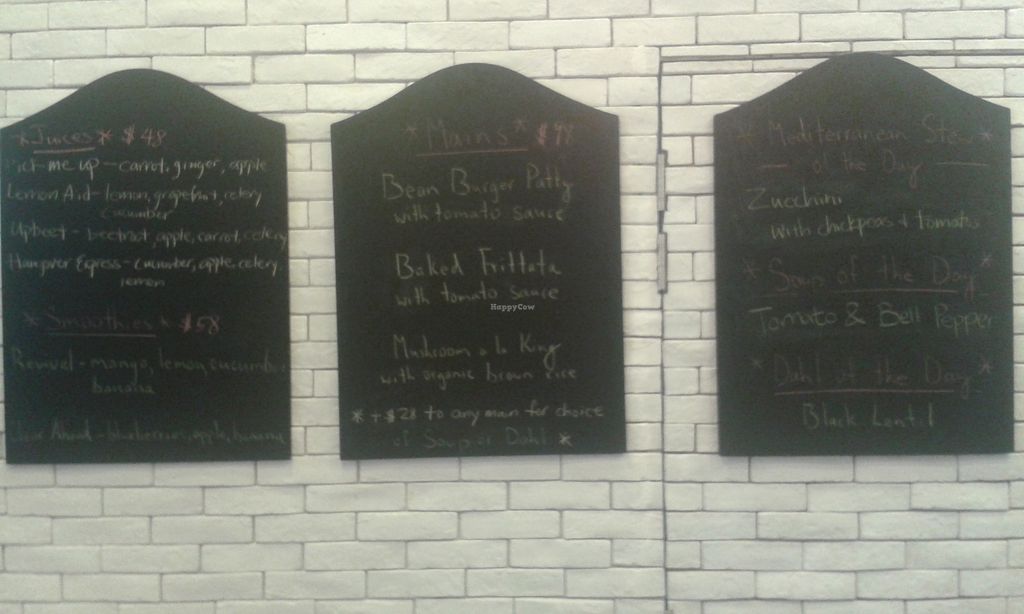 *Juices* $48
Pick me up - carrot, ginger, apple
Lemon Aid - lemon, grapefruit, celery
cucumber
Upbeet - beetroot, apple, carrot, celery
Hangover Express - cucumber, apple, celery
lemon
*Smoothies* $58
Revival - mango, lemon, cucumber
banana
Clear Ahead - blueberries, apple, banana
*Mains* $98
Bean Burger Patty
with tomato sauce
Baked Frittata
with tomato sauce
HappyCow
Mushroom a la King
with organic brown rice
* + $28 to any main for choice
of Soup or Dahl *
* Mediterranean Stew *
of the Day
Zucchini
with chickpeas + tomatoes
* Soup of the Day *
Tomato & Bell Pepper
* Dahl of the Day *
Black Lentil